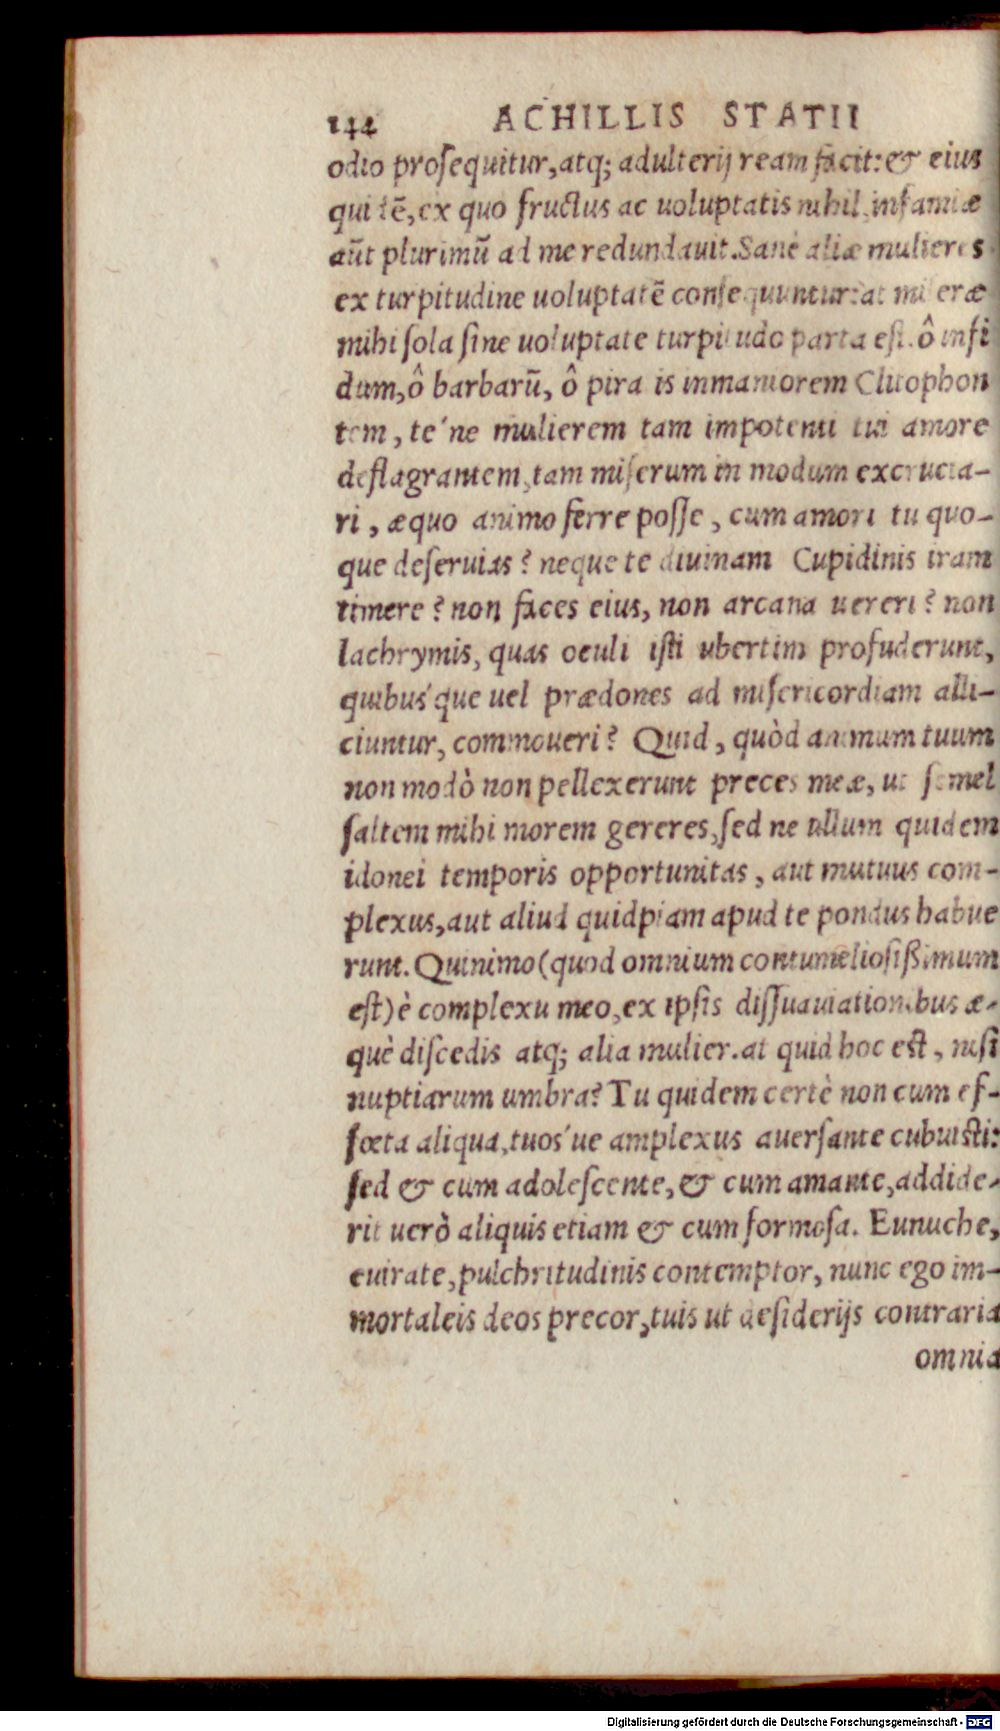 144 ACHILLIS STATII
odio proſequitur, atq; adulterij ream facit: & eius
quitẽ, ex quo fructus ac uoluptatis nihil, infamiæ
aũt plurimũ ad me redundauit. Sanè aliæ mulieres
ex turpitudine uoluptatẽ conſequuntur: at miſeræ
mihi ſola ſine uoluptate turpitudo parta eſt. ô infi
dum, ô barbarũ, ô piratis inmaniorem Clitophon
tem, te'ne mulierem tam impotenti tui amore
deflagrantem, tam miſerum in modum excrucia-
ri, æquo animo ferre poſſe, cum amori tu quo-
que deſeruias? neque te diuinam Cupidinis iram
timere? non faces eius, non arcana uereri? non
lachrymis, quas oculi iſti ubertim profuderunt,
quibus'que uel prædones ad miſericordiam alli-
ciuntur, commoueri? Quid, quòd animum tuum
non modò non pellexerunt preces meæ, ut ſemel
ſaltem mihi morem gereres, ſed ne ullum quidem
idonei temporis opportunitas, aut mutuus com-
plexus, aut aliud quidpiam apud te pondus habue
runt. Quinimo (quod omnium contumelioſißimum
eſt) è complexu meo, ex ipſis diſſuauiationibus æ-
què diſcedis atq; alia mulier. at quid hoc eſt, niſi
nuptiarum umbra? Tu quidem certè non cum ef-
fœta aliqua, tuos'ue amplexus auerſante cubuiſti:
ſed & cum adoleſcente, & cum amante, addide-
rit uerò aliquis etiam & cum formoſa. Eunuche,
euirate, pulchritudinis contemptor, nunc ego im-
mortaleis deos precor, tuis ut deſiderijs contraria
omnia
Digitalisierung gefördert durch die Deutsche Forschungsgemeinschaft - DFG